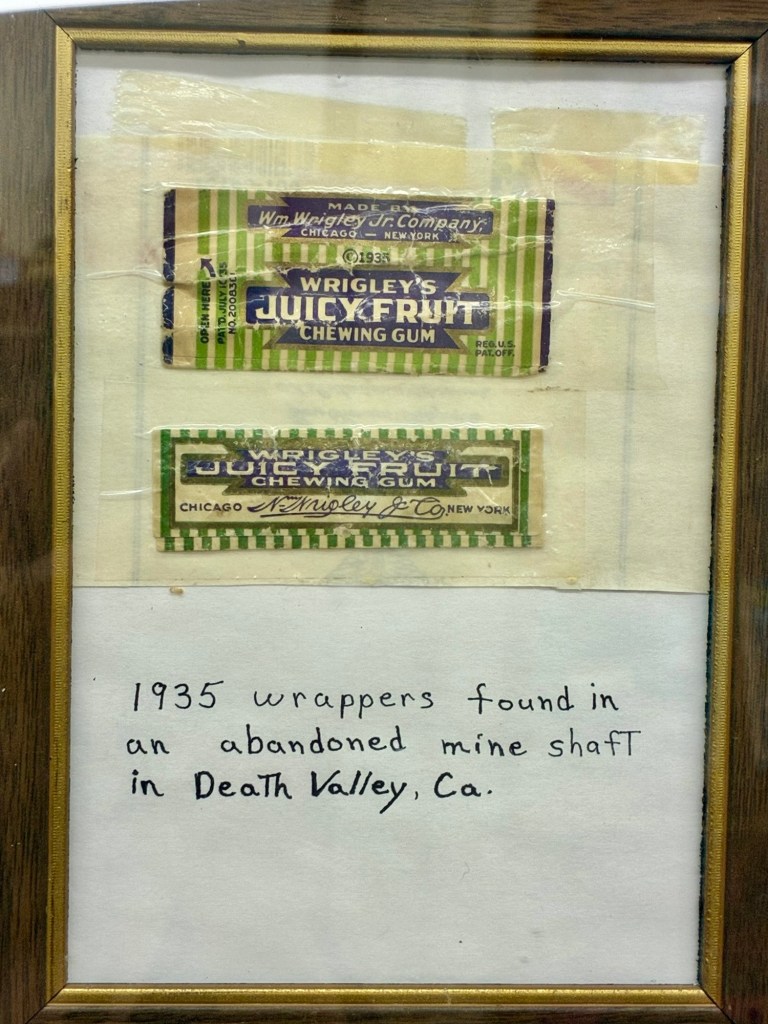 MADE BY
Wm. Wrigley Jr. Company.
CHICAGO — NEW YORK
©1935
WRIGLEY'S
JUICY FRUIT
CHEWING GUM
OPEN HERE
PAT'D. JULY 16 35
REG. U.S.
PAT. OFF.
WRIGLEY'S
JUICY FRUIT
CHEWING GUM
CHICAGO Wm Wrigley Jr. Co. NEW YORK
1935 wrappers found in
an abandoned mine shaft
in Death Valley, Ca.